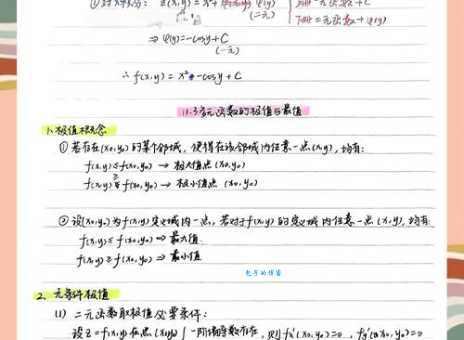 ⇒ φ(y)=-cosy+C
(一元)
∴ f(x,y) = x² -cosy+C
11.3 多元函数的极值与最值
1. 极值概念
① 若存在(x₀,y₀)的某个邻域, 使得在该邻域内任意一点(x,y), 均有:
f(x,y)≤f(x₀,y₀) → 极大值点 (x₀,y₀)
f(x,y)≥f(x₀,y₀) → 极小值点 (x₀,y₀)
② 设(x₀,y₀)为f(x,y)定义域内一点, 若对于f(x,y)的定义域内任意一点(x,y), 均有
f(x,y)≤f(x₀,y₀) ⇒ 最大值
f(x,y)≥f(x₀,y₀) ⇒ 最小值
2. 无条件极值
(1) 二元函数取极值必要条件:
设z=f(x,y)在点(x₀,y₀) 一阶偏导数存在, 则 fx'(x₀,y₀)=0